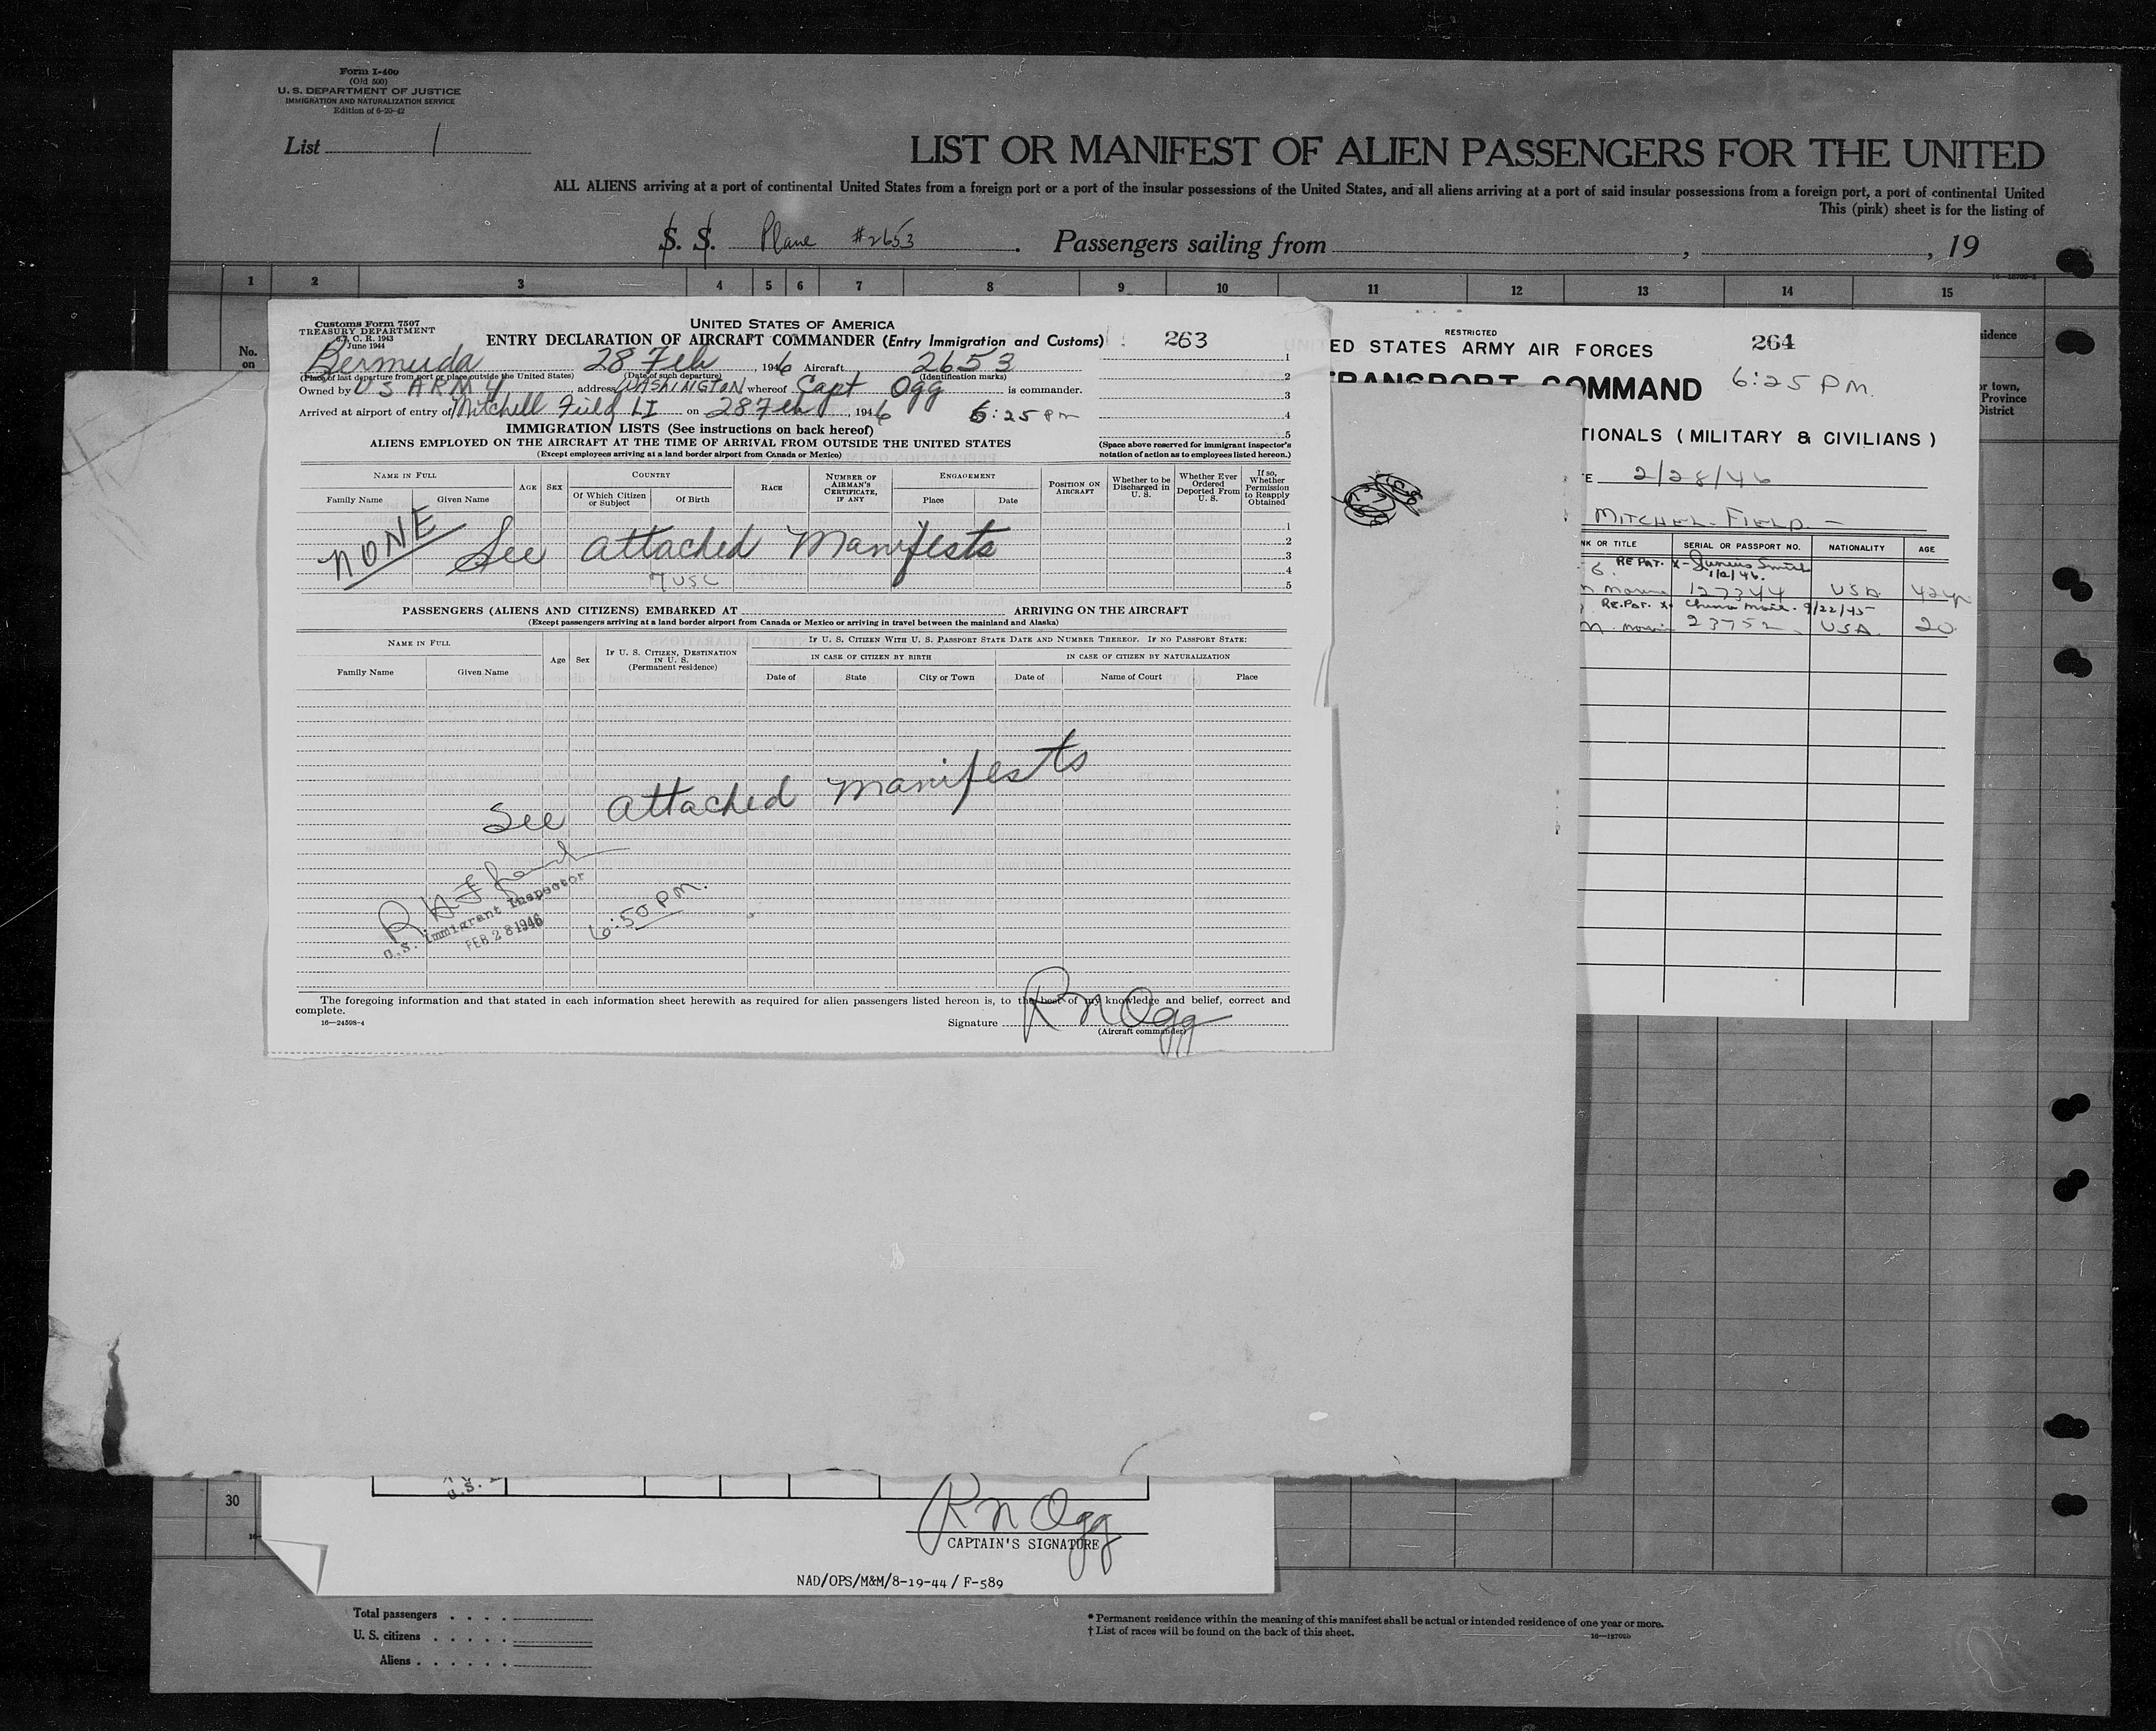 Form I-400
(Old 500)
U. S. DEPARTMENT OF JUSTICE
IMMIGRATION AND NATURALIZATION SERVICE
Edition of 6-20-42
List 1
LIST OR MANIFEST OF ALIEN PASSENGERS FOR THE UNITED
ALL ALIENS arriving at a port of continental United States from a foreign port or a port of the insular possessions of the United States, and all aliens arriving at a port of said insular possessions from a foreign port, a port of continental United
This (pink) sheet is for the listing of
S. S. Plane #2653 . Passengers sailing from , , 19
1 2 3 4 5 6 7 8 9 10 11 12 13 14 15
No.
on
sidence
or town,
Province
District
Customs Form 7507
TREASURY DEPARTMENT
C. R. 1943
June 1944
UNITED STATES OF AMERICA
ENTRY DECLARATION OF AIRCRAFT COMMANDER (Entry Immigration and Customs)
263
Bermuda 28 Feb , 1946 Aircraft 2653
(Place of last departure from port or place outside the United States) (Date of such departure) (Identification marks)
Owned by U S ARMY , address WASHINGTON whereof Capt Ogg is commander.
Arrived at airport of entry of Mitchell Field LI on 28 Feb , 1946 6:25 pm
1
2
3
4
5
IMMIGRATION LISTS (See instructions on back hereof)
ALIENS EMPLOYED ON THE AIRCRAFT AT THE TIME OF ARRIVAL FROM OUTSIDE THE UNITED STATES
(Except employees arriving at a land border airport from Canada or Mexico)
(Space above reserved for immigrant inspector's
notation of action as to employees listed hereon.)
NAME IN FULL
Family Name Given Name
AGE SEX
COUNTRY
Of Which Citizen or Subject Of Birth
RACE
NUMBER OF AIRMAN'S CERTIFICATE, IF ANY
ENGAGEMENT
Place Date
POSITION ON AIRCRAFT
Whether to be Discharged in U. S.
Whether Ever Ordered Deported From U. S.
If so, Whether Permission to Reapply Obtained
NONE See attached Manifests
7 USC
1
2
3
4
5
PASSENGERS (ALIENS AND CITIZENS) EMBARKED AT ARRIVING ON THE AIRCRAFT
(Except passengers arriving at a land border airport from Canada or Mexico or arriving in travel between the mainland and Alaska)
NAME IN FULL
Family Name Given Name
Age Sex
IF U. S. CITIZEN, DESTINATION IN U. S.
(Permanent residence)
IF U. S. CITIZEN WITH U. S. PASSPORT STATE DATE AND NUMBER THEREOF. IF NO PASSPORT STATE:
IN CASE OF CITIZEN BY BIRTH IN CASE OF CITIZEN BY NATURALIZATION
Date of State City or Town Date of Name of Court Place
See attached manifests
U.S. Immigrant Inspector
FEB 28 1946
6:50 P.M.
The foregoing information and that stated in each information sheet herewith as required for alien passengers listed hereon is, to the best of my knowledge and belief, correct and
complete.
16—24598-4
Signature R N Ogg
(Aircraft commander)
RESTRICTED
ED STATES ARMY AIR FORCES
264
TRANSPORT COMMAND
6:25 PM.
TIONALS (MILITARY & CIVILIANS)
E 2/28/46
MITCHEL FIELD -
NK OR TITLE SERIAL OR PASSPORT NO. NATIONALITY AGE
RE PAT. X- Junius Smith
1/2/46.
127344 USA 42
Re.Pat. X- China Mail. 9/22/45
23752 USA. 20
30
U.S.
R N Ogg
CAPTAIN'S SIGNATURE
NAD/OPS/M&M/8-19-44 / F-589
Total passengers
U. S. citizens
Aliens
* Permanent residence within the meaning of this manifest shall be actual or intended residence of one year or more.
† List of races will be found on the back of this sheet.